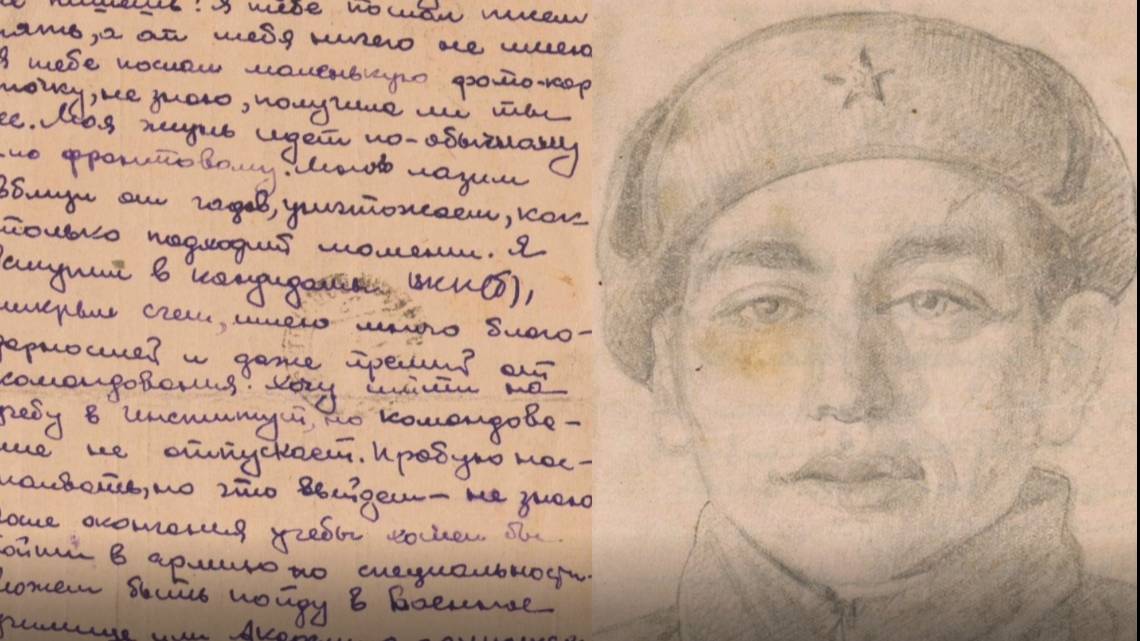 не пишешь? Я тебе послал писем
пять, а от тебя ничего не имею
Я тебе послал маленькую фото-кар
точку, не знаю, получила ли ты
ее. Моя жизнь идет по-обычному
-по фронтовому. Много лазим
вблизи от гадов, уничтожаем, как-
только подходит момент. Я
вступил в кандидаты ВКП(б),
открыл счет, имею много благо-
дарностей и даже премий от
командования. Хочу итти на
учебу в институт, но командова-
ние не отпускает. Пробую нас-
таивать, но что выйдет – не знаю
после окончания учебы хотел бы
пойти в армию по специальности.
Может быть пойду в Военное
училище или